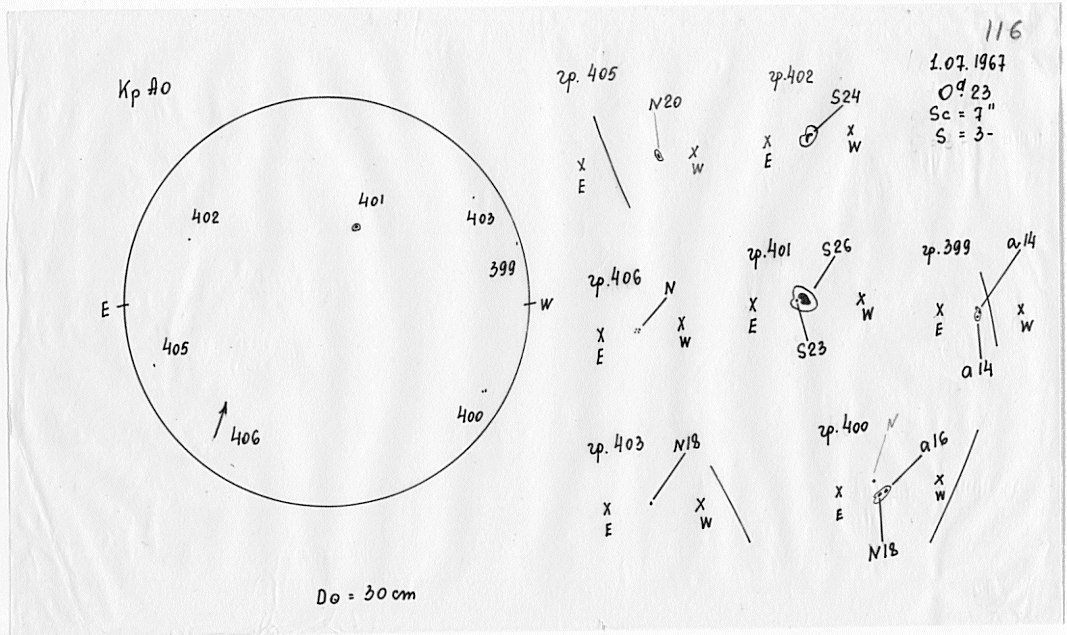 116
Кр АО
1.07.1967
0ᵈ.23
Sc = 7"
S = 3-
402
401
403
399
E
W
405
400
406
D⊙ = 30 cm
гр. 405
N20
X
E
X
W
гр. 402
S24
X
E
X
W
гр. 406
N
X
E
X
W
гр. 401
S26
X
E
X
W
S23
гр. 399
a14
X
E
X
W
a14
гр. 403
N18
X
E
X
W
гр. 400
N
a16
X
E
X
W
N18